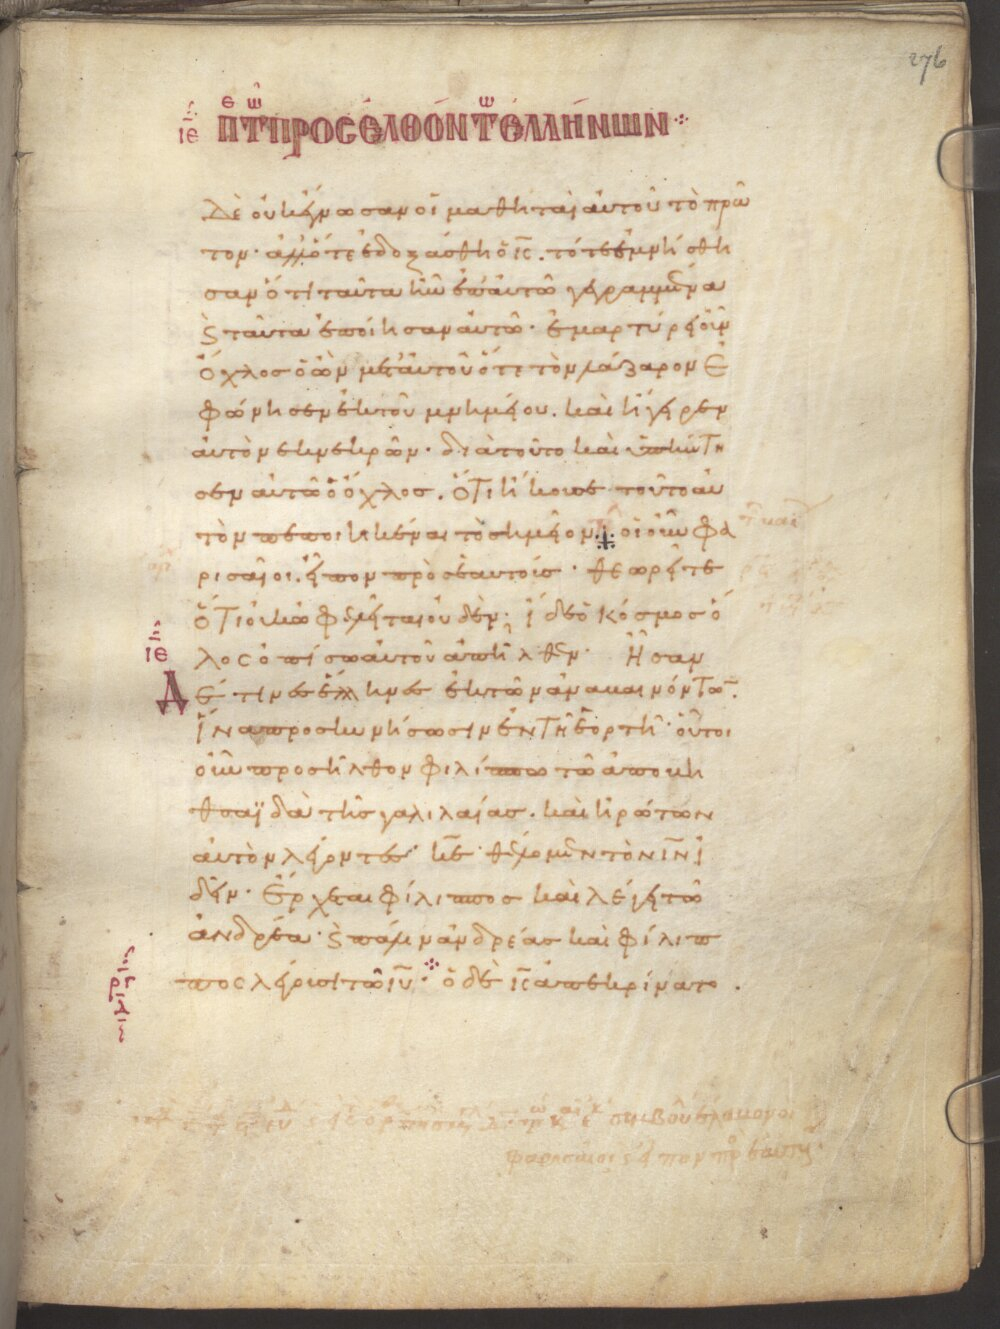 276
ιε Π Τ ΠΡΟΣΕΛΘΟΝΤ ΕΛΛΗΝΩΝ
Δὲ οὐκ ἔγνωσαν οἱ μαθηταὶ αὐτοῦ τὸ πρῶ
τον· ἀλλ ὅτε ἐδοξάσθη ὁ ις. τότε ἐμνήσθη
σαν ὅτι ταῦτα ἦν ἐπ αὐτῶ γεγραμμένα
ϛ ταῦτα ἐποίησαν αὐτῶ· ἐμαρτύρει οὖν
ὁ ὄχλος ὁ ὢν μετ αὐτοῦ ὅτε τὸν λάζαρον ἐ
φώνησεν ἐκ τοῦ μνημείου. καὶ ἤγειρεν
αὐτὸν ἐκ νεκρῶν· διὰ τοῦτο καὶ ὑπήντη
σεν αὐτῶ ὁ ὄχλος. ὅτι ἤκουσε τοῦτο αὐ
τὸν πεποιηκέναι τὸ σημεῖον· οἱ οὖν φα
ρισαῖοι. εἶπον πρὸς ἑαυτούς· θεωρεῖτε
ὅτι οὐκ ὠφελεῖται οὐδέν; ἴδε ὁ κόσμος ὅ
λος ὀπίσω αὐτοῦ ἀπῆλθεν· Ἦσαν
ιε
Δέ τινες ἕλληνες ἐκ τῶν ἀναβαινόντων.
ἵνα προσκυνήσωσιν ἐν τῆ ἑορτῆ· οὗτοι
οὖν προσῆλθον φιλίππω τῶ ἀπὸ βη
θσαϊδὰ τῆς γαλιλαίας. καὶ ἠρώτων
αὐτὸν λέγοντες· κε· θέλομεν τὸν ιν ἰ
δεῖν· Ἔρχεται φίλιππος καὶ λέγει τῶ
ἀνδρέα· ϛ πάλιν ἀνδρέας καὶ φίλιπ
πος λέγουσι τῶ ιυ· ὁ δὲ ις ἀπεκρίνατο.